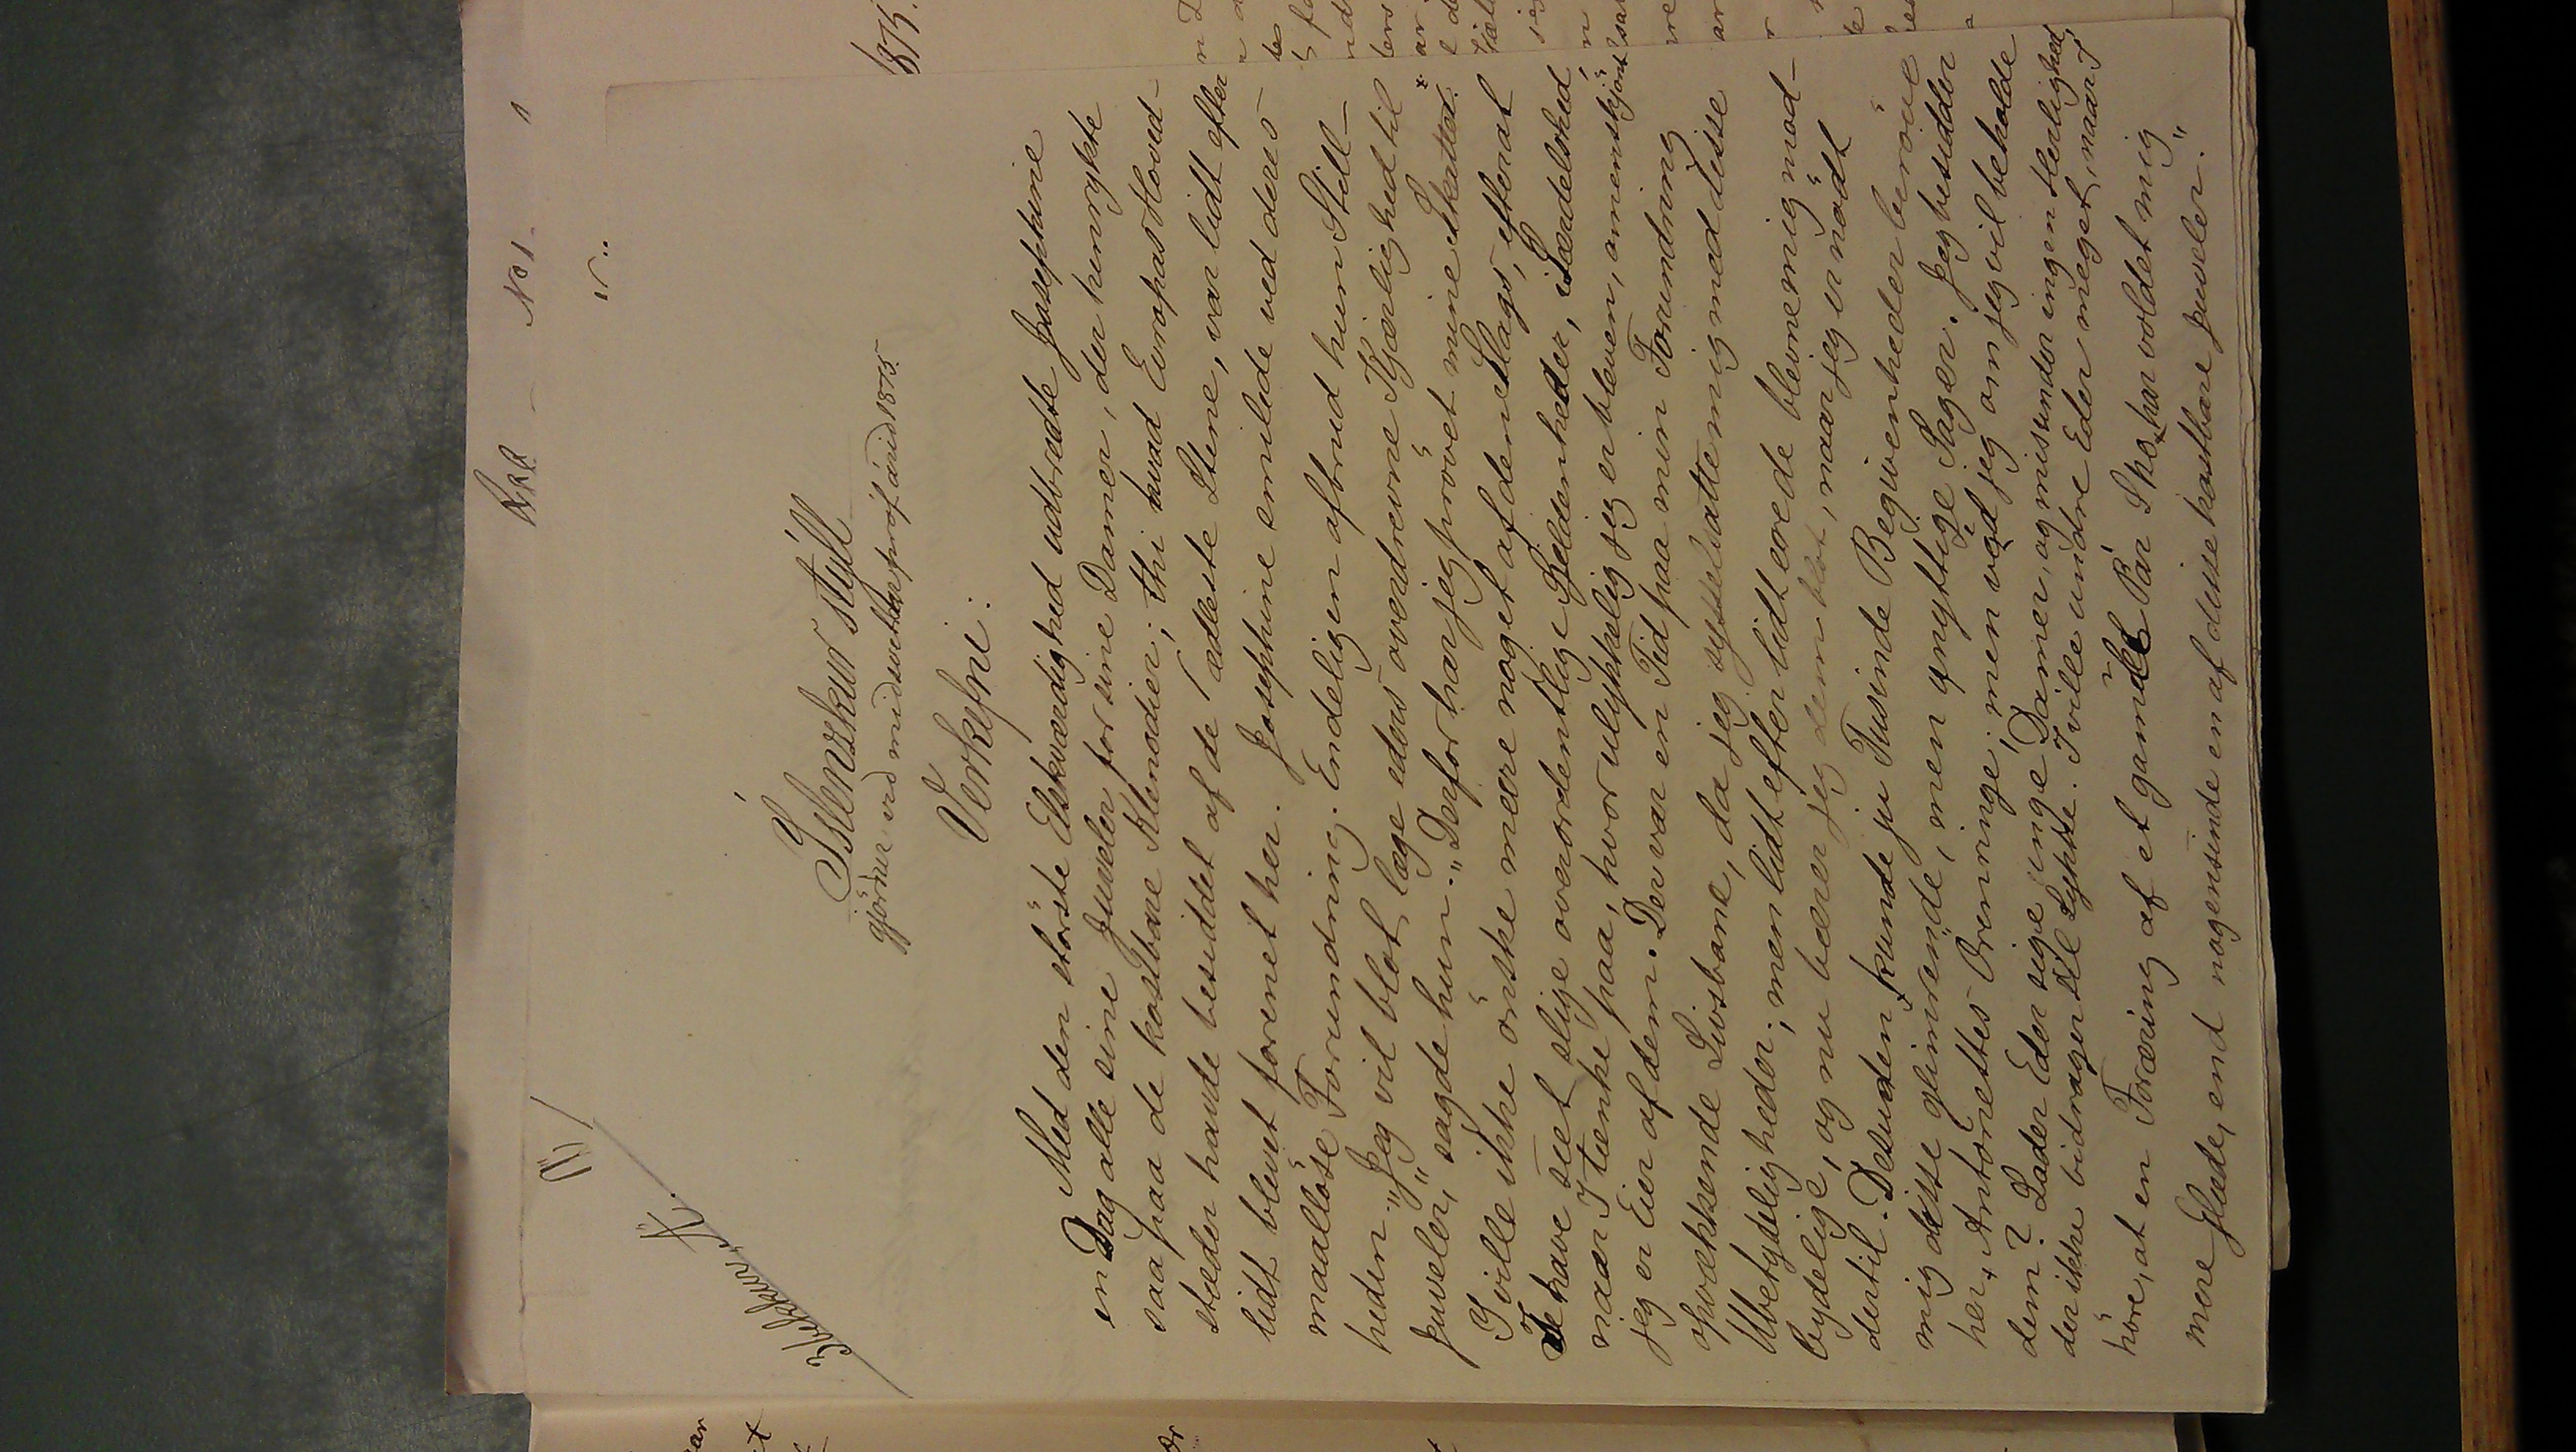 RRR - No 1. 1
(1)
Flekkur. A.
v..
Íslenzkur stýll
gjörður við miðsvetrarpróf árið 1875.
Verkefni:
Med den störste Elskværdighed udbredte Josephine
en Dag alle sine Juveler for sine Damer, der henrykte
saa paa de kostbare Klenodier; thi hvad Evropas Hoved-
stæder havde besiddet af de ædleste Stene, var lidt efter
lidt blevet forenet her. Josephine smilede ved deres
maallöse Forundring. Endeligen afbröd hun Still-
heden. „Jeg vil blot læge eders overdrevne Kjærlighed til
Juveler," sagde hun. „Derfor har jeg prövet mine Skatter.
I ville ikke önske meere noget af dene Slags, efterat
I have seet slige overordentlige Sjeldenheder, i Særdeleshed,
naar I tænke paa, hvor ulykkelig jeg er bleven, omenskjönt
jeg er Eier af dem. Der var en Tid paa min Forundring
opvækkende Livsbane, da jeg sysselsatte mig med disse
Ubetydeligheder; men lidt efter lidt ere de blevne mig mod-
bydelige, og nu bærer jeg dem blot, naar jeg er nödt
dertil. Desuden kunde jo Tusinde Begivenheder beröve
mig disse glimrende, men unyttige Sager. Jeg besidder
her Antonettes Örenringe; men véd jeg om jeg vil beholde
dem? Lader Eder sige unge Damer, og misunder ingen Herlighed,
der ikke bidrager til Lykke. I ville undre Eder meget, naar I
höre, at en Foræring af et gammelt Par Sko har voldet mig
mere Glæde, end nogensinde en af disse kostbare Juveler."